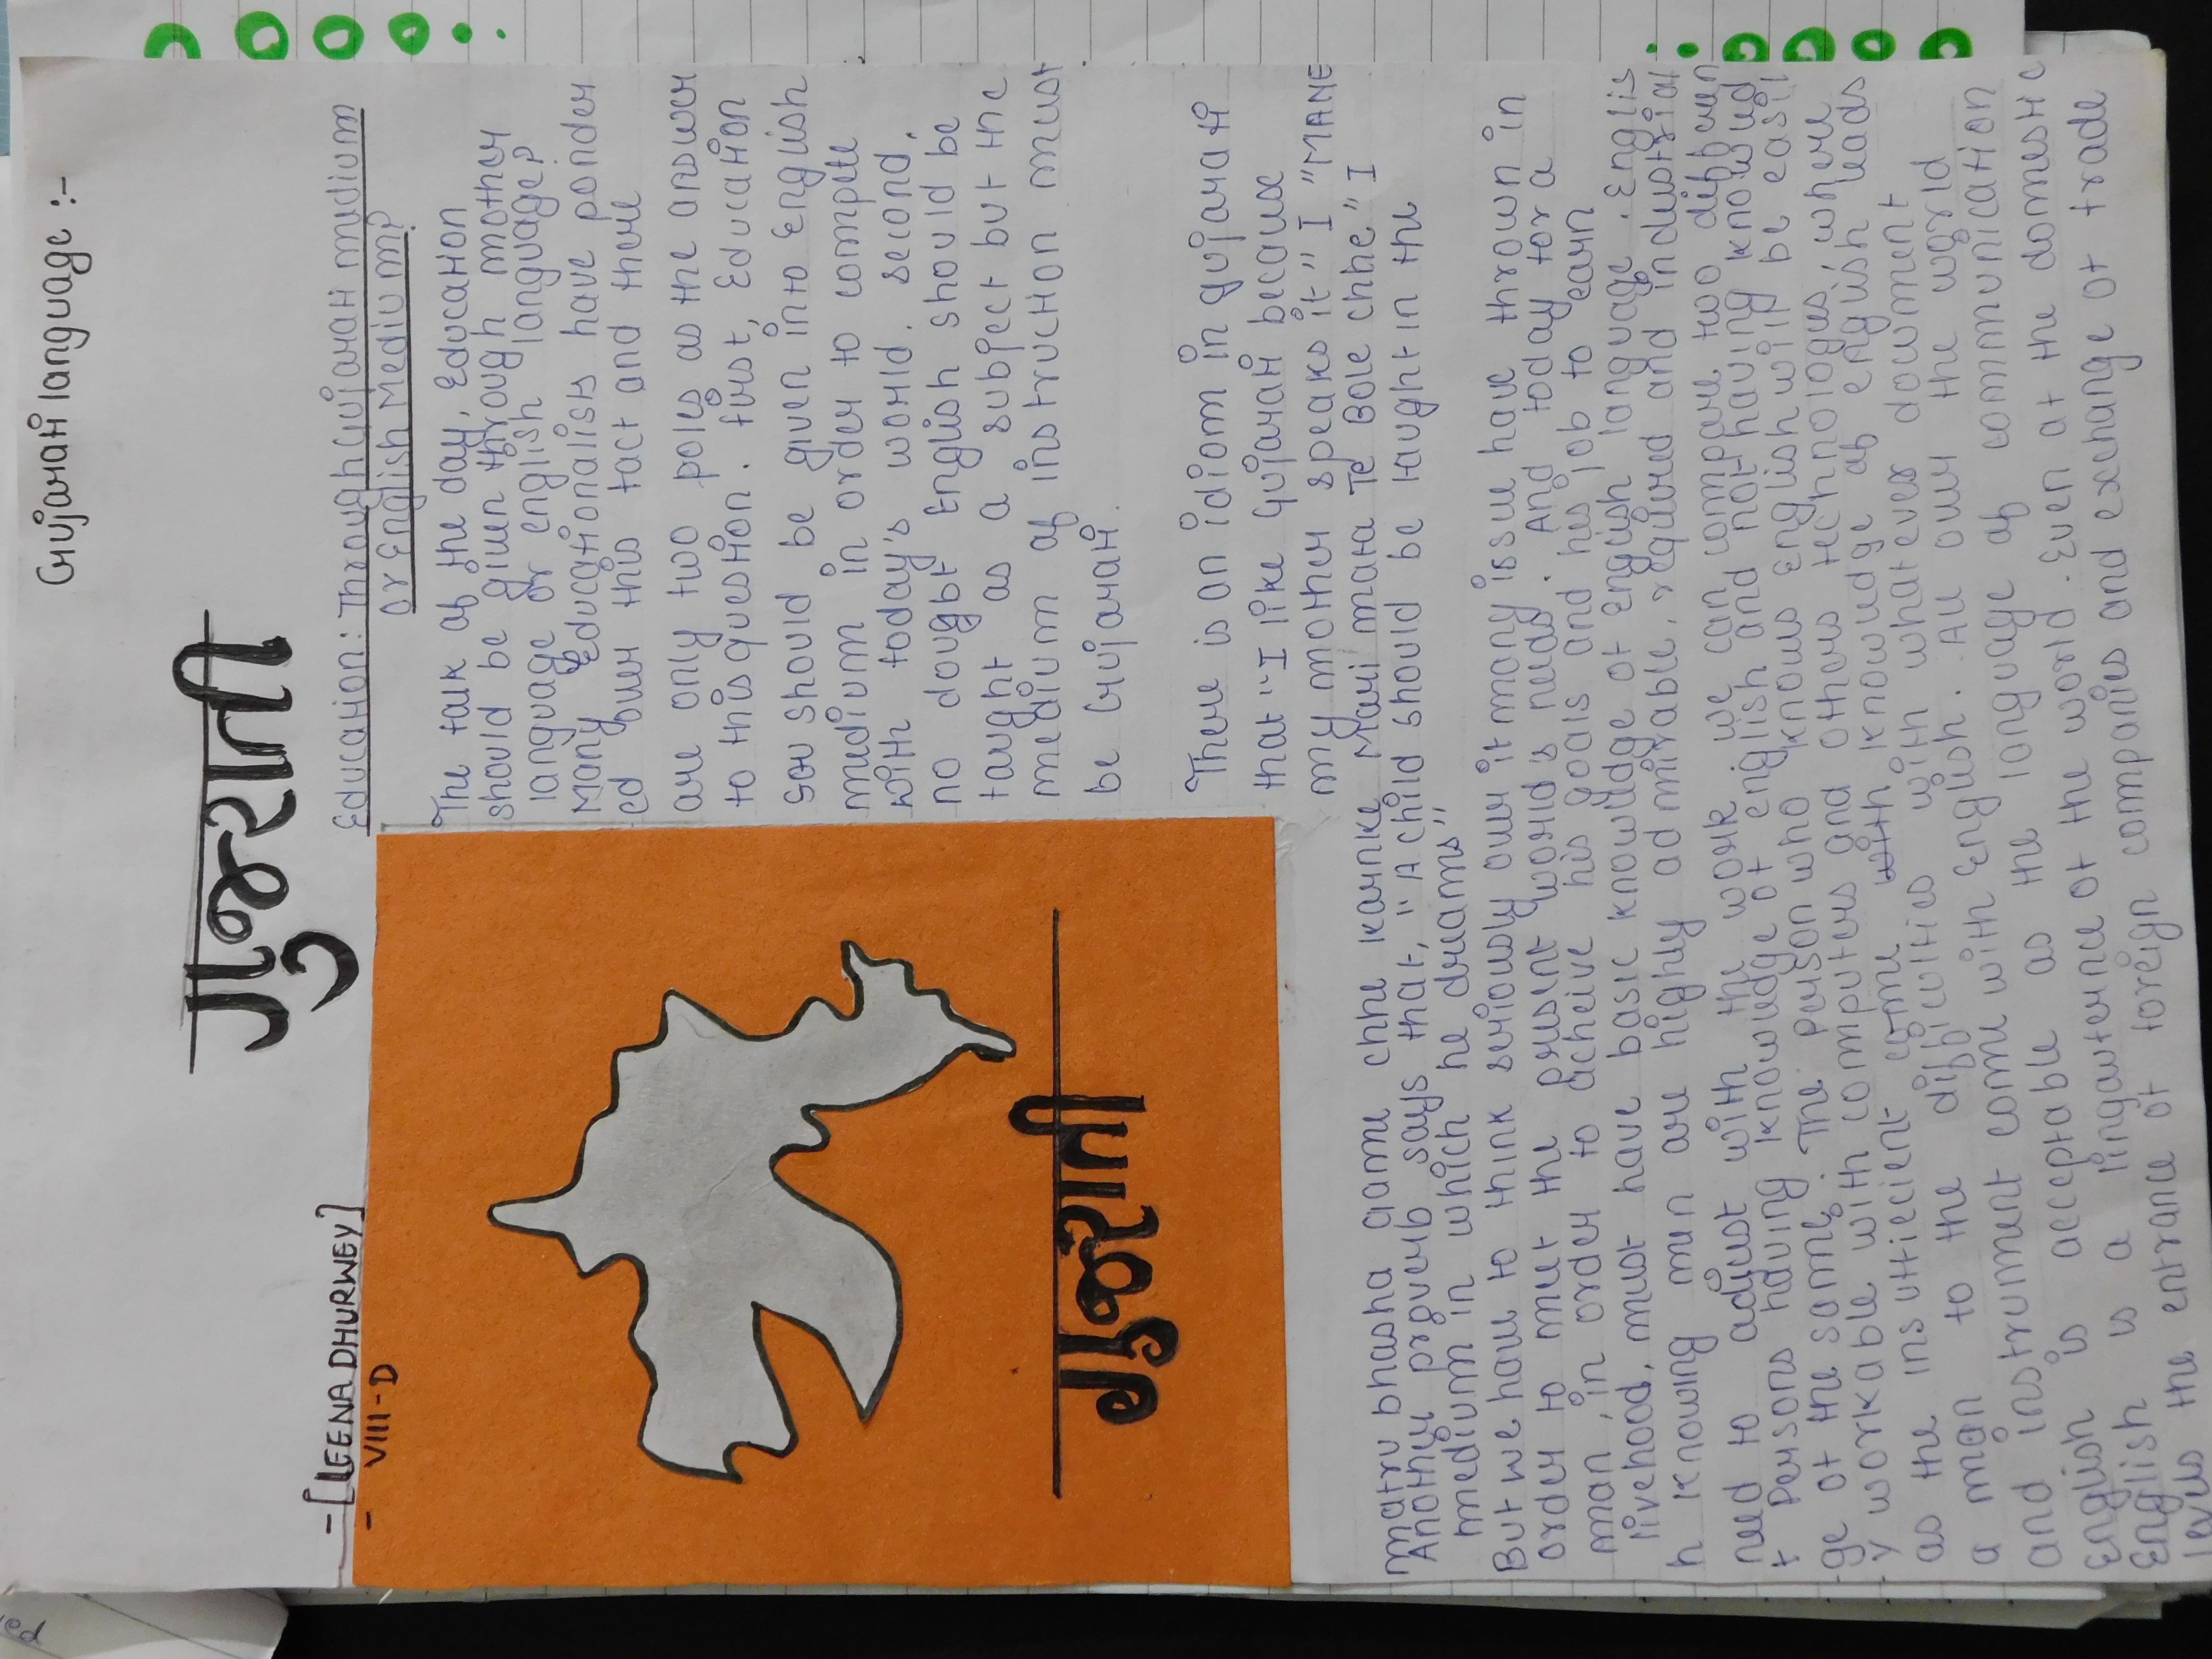 Gujarati language :-
गुजराती
-[LEENA DHURWEY]
- VIII-D
Education: Through Gujarati medium
or English Medium?
The talk of the day, Education
should be given through mother
language or english language?
Many Educationalists have ponder
ed over this fact and there
are only two
as the answer
to this question. first, Education
sos should be given into English
medium in order to compete
with today's world. second,
no dought English should be
taught as a subject but the
medium of instruction must
be Gujarati.
गुजराती
There is an idiom in Gujarati
that I.. like Gujarati because
my mother speaks it" I "MANE
matru bhasha game chhe karnke Mari mara Te Bole chhe" I
Another proverb says that, "A child should be taught in the
medium in which he dreams"
But we have to think seriously over it many issue have thrown in
order to meet the present world's need. And today for a
man, in order to acheive his goals and his job to earn
livehood, must have basic knowledge of English language. Englis
h knowing men are highly admirable, required and industrial
need to adjust with the work
t persons having knowledge of english and you having knowled
ge of the same. The person who knows English will be easil
y workable with computers and other technologies, where
as the insufficient some with knowledge of english leads
a man to the difficulties in whatever
and instrument come with English. All over the world
english is acceptable as the language of communication
English is a linguaterne of the world. Even at the domestic
levels the entrance of foreign companies and exchange of trade